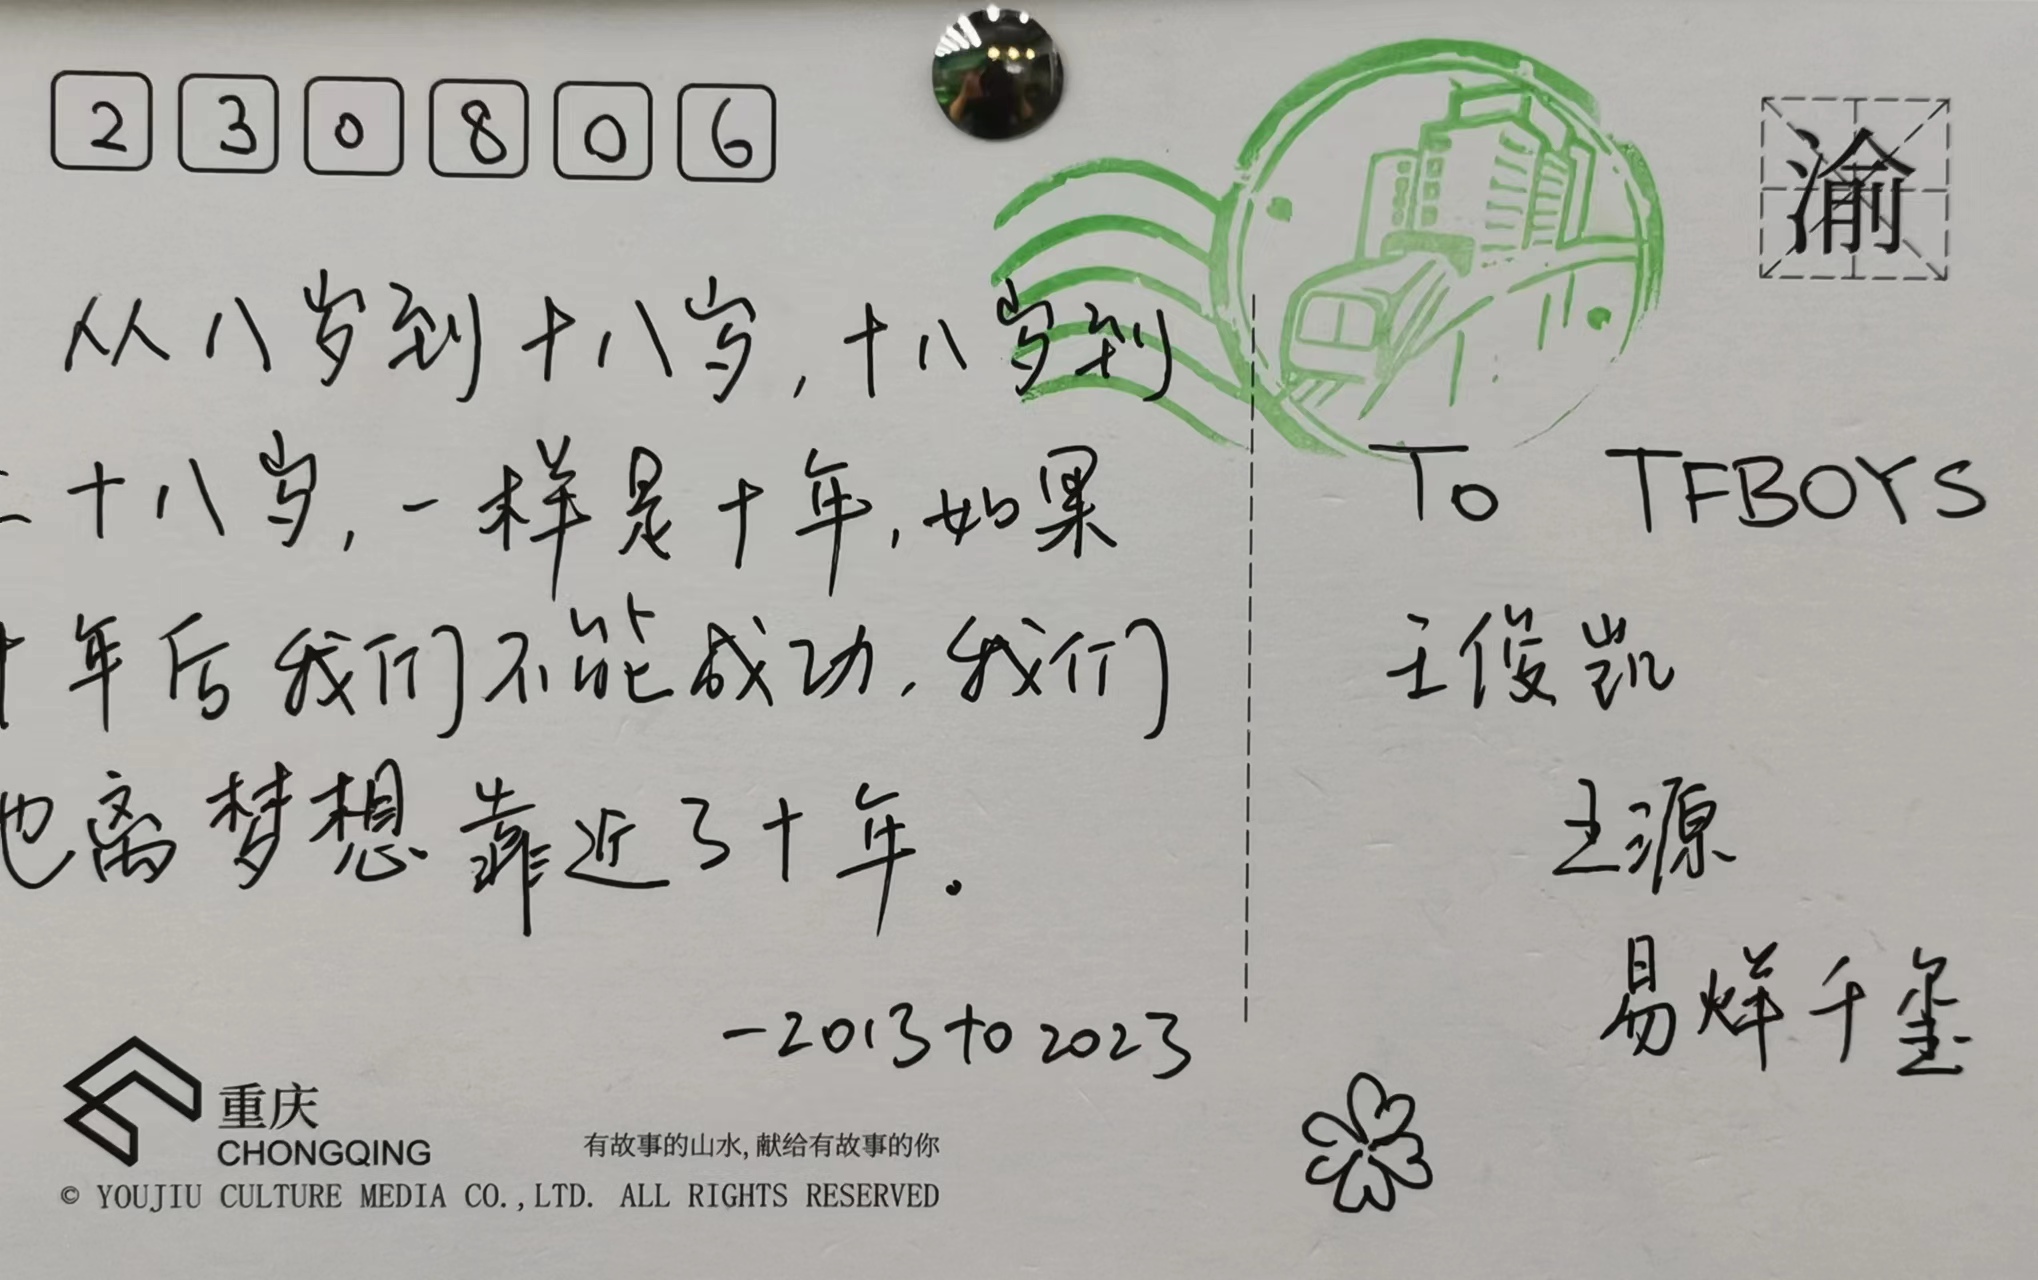 230806
渝
从八岁到十八岁，十八岁到
二十八岁，一样是十年，如果
十年后我们不能成功，我们
也离梦想靠近了十年。
-2013 to 2023
To TFBOYS
王俊凯
王源
易烊千玺
重庆
CHONGQING
有故事的山水,献给有故事的你
© YOUJIU CULTURE MEDIA CO.,LTD. ALL RIGHTS RESERVED